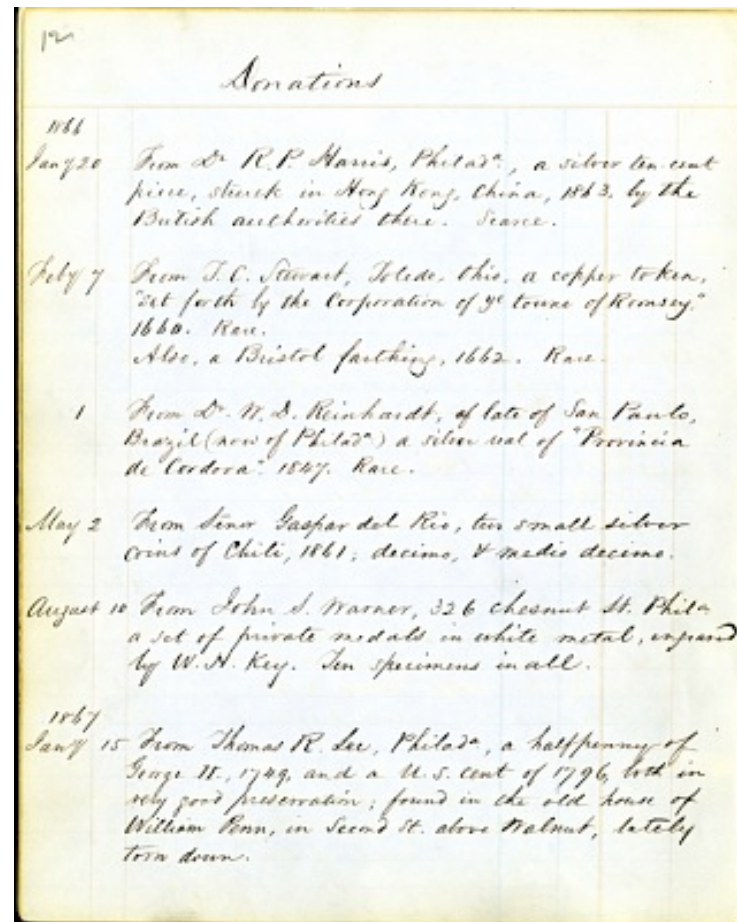 12
Donations
1866
Jany 20 From Dr R. P. Harris, Philada, a silver ten cent
piece, struck in Hong Kong, China, 1863, by the
British authorities there. Scarce.
Feby 7 From J. C. Stewart, Toledo, Ohio, a copper token,
"set forth by the Corporation of ye towne of Romsey"
1666. Rare.
Also, a Bristol farthing, 1662. Rare.
1 From Dr. W. D. Reinhardt, of late of San Paulo,
Brazil (now of Philada) a silver real of "Provincia
de Cordova" 1847. Rare.
May 2 From Senor Gaspar del Rio, two small silver
coins of Chili, 1861; decimo, & medio decimo.
August 10 From John S. Warner, 326 Chesnut St. Phila
a set of private medals in white metal, engraved
by W. H. Key. Ten specimens in all.
1867
Jany 15 From Thomas R. Lee, Philada, a halfpenny of
George II., 1749, and a U. S. cent of 1796, both in
very good preservation; found in the old house of
William Penn, in Second St. above Walnut, lately
torn down.